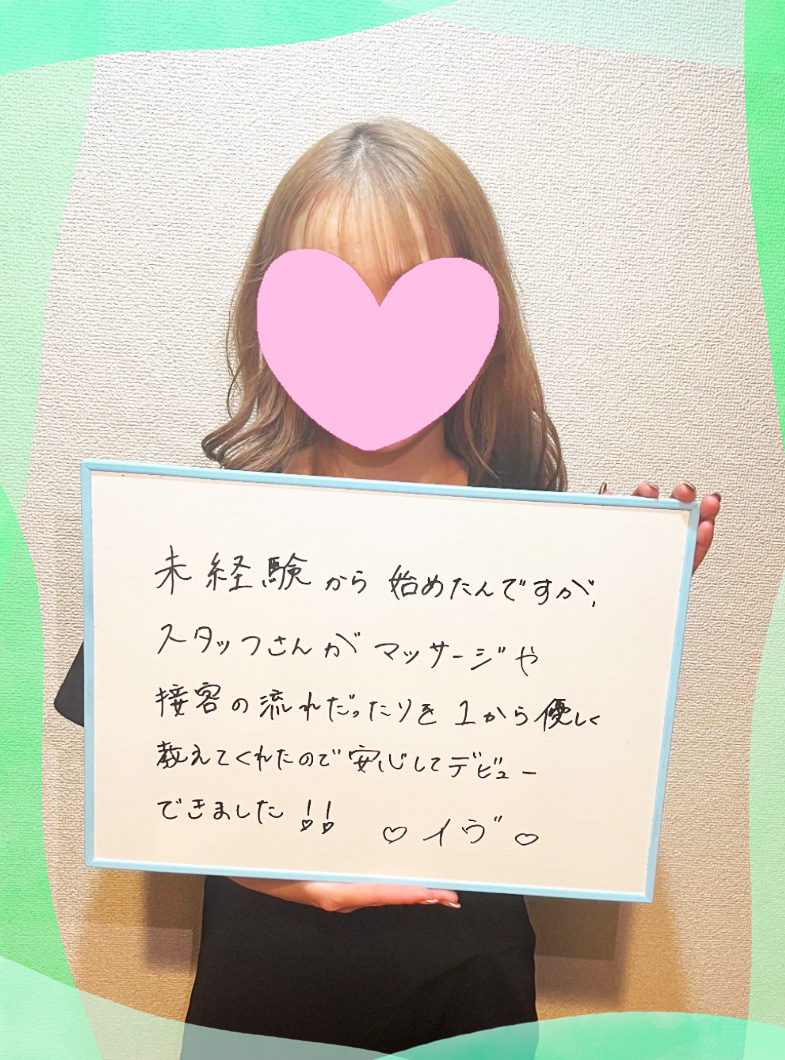 未経験から始めたんですが、
スタッフさんがマッサージや
接客の流れだったりを1から優しく
教えてくれたので安心してデビュー
できました!!
♡イヴ♡